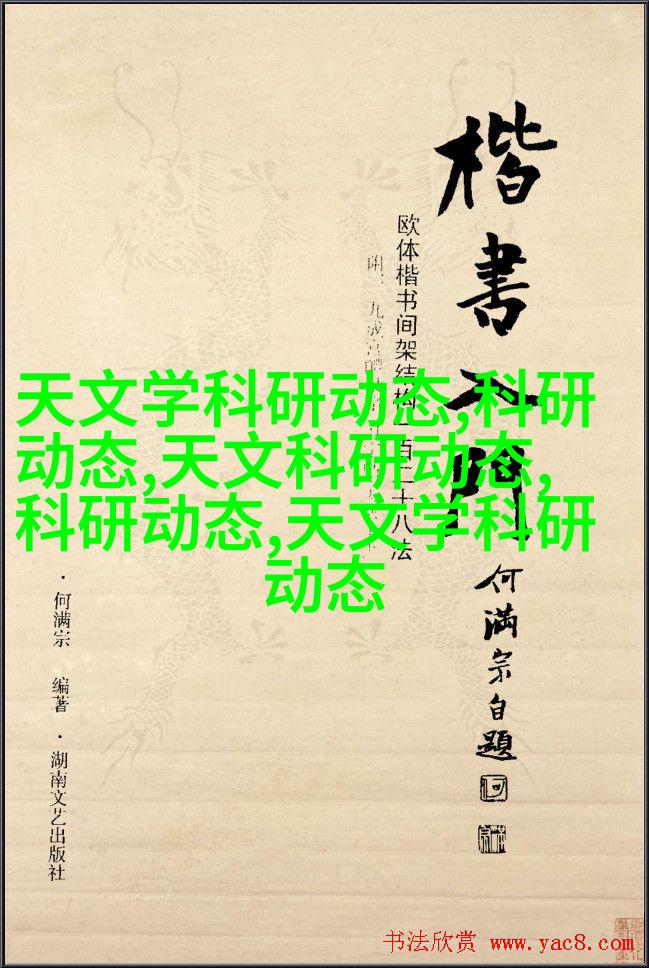 楷書入門
欧体楷书间架结构一百二十八法
何满宗自题
天文学科研动态,科研
动态,天文科研动态,
科研动态,天文学科研
动态
·何满宗 编著·湖南文艺出版社
书法欣赏 www.yac8.com